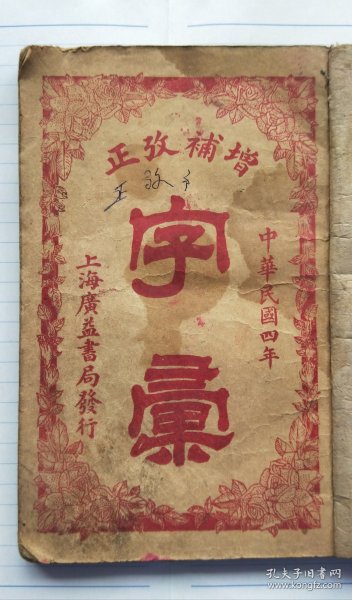 增補攷正
字彙
中華民國四年
上海廣益書局發行
孔夫子旧书网
www.kongfz.com